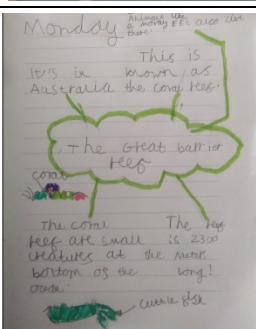 Monday
Animals like
a moray EEL also live
there.
This is
known as
the coral reef.
It's in
Australia
The Great barrior
reef
coral
The coral
reef are small
creatures at the
bottom of the
ocean.
The reef
is 2300
meters
long!
cuttle fish